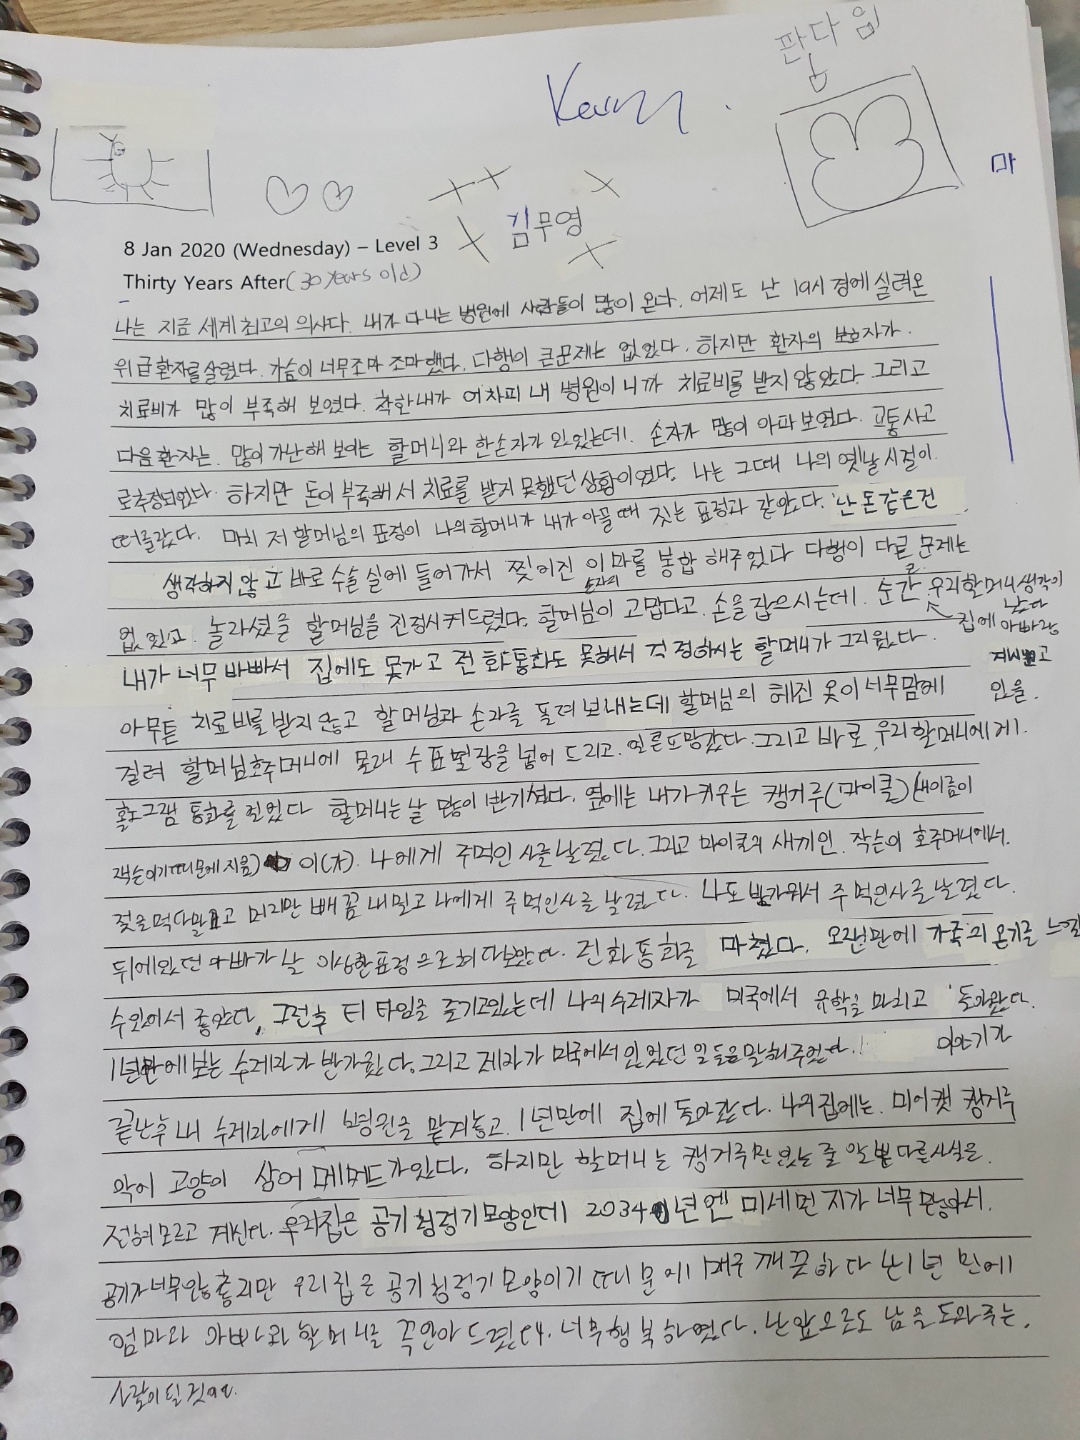 판다 임
마
김무영
8 Jan 2020 (Wednesday) – Level 3
Thirty Years After (30 years old)
나는 지금 세계 최고의 의사다. 내가 다니는 병원에 사람들이 많이 온다. 어제도 난 19시 경에 실려온
위급환자를 살렸다. 가슴이 너무 조마조마했다. 다행이 큰문제는 없었다. 하지만 환자의 보호자가.
치료비가 많이 부족해 보였다. 착한내가 어차피 내 병원이니까 치료비를 받지 않았다. 그리고
다음환자는. 많이 가난해 보이는 할머니와 한손자가 있었는데. 손자가 많이 아파 보였다. 교통사고
로추정되었다. 하지만 돈이 부족해서 치료를 받지 못했던 상황이였다. 나는 그때 나의 옛날 시절이
떠올랐다. 마치 저 할머님의 표정이 나의할머니가 내가 아플 때 짓는 표정과 같았다. 난 돈같은건
생각하지 않고 바로 수술실에 들어가서 찢어진 손자의 이마를 봉합 해주었다 다행이 다른 문제는
없었고. 놀라셨을 할머님을 진정시켜드렸다. 할머님이 고맙다고 손을 잡으시는데. 순간 우리할머니생각이 났다
내가 너무 바빠서 집에도 못가고 전화통화도 못해서 걱정하시는 할머니가 그리웠다. 집에 아빠랑
계시고
있을.
아무튼 치료비를 받지 않고 할머님과 손자를 돌려 보내는데 할머님의 헤진 옷이 너무맘에
걸려 할머님호주머니에 몰래 수표몇장을 넣어 드리고. 얼른도망갔다. 그리고 바로 우리할머니에게.
홀로그램 통화를 걸었다 할머니는 날 많이 반기셨다. 옆에는 내가키우는 캥거루(마이클)(새이름이
잭슨이기때문에지음) 이(가). 나에게 주먹인사를 날렸다. 그리고 마이클의 새끼인. 작슨이 호주머니에서.
젖을먹다말고 머리만 빼꼼 내밀고 나에게 주먹인사를 날렸다. 나도 반가워서 주먹인사를 날렸다.
뒤에있던 아빠가 날 이상한표정으로 쳐다보았다. 전화통화를 마쳤다. 오랜만에 가족의 온기를 느낄
수있어서 좋았다. 그런후 티 타임을 즐기고있는데 나의수제자가 미국에서 유학을 마치고 돌아왔다.
1년만에보는 수제자가 반가웠다. 그리고 제자가 미국에서 있었던 일들을말해주었다. 이야기가
끝난후 내 수제자에게 병원을 맡겨놓고. 1년만에 집에 돌아갔다. 나의집에는. 미어캣 캥거루
악어 고양이 상어 가있다. 하지만 할머니는 캥거루만 있는 줄 알뿐 다른사실은.
전혀모르고 계신다. 우리집은 공기청정기모양인데 2034년엔 미세먼지가 너무 많아서.
공기가너무안좋지만 우리집은 공기청정기모양이기 때문에 매우 깨끗하다 난 1년 만에
엄마와 아빠와할머니를 꼭안아 드렸다. 너무행복하였다. 난 앞으로도 남을 도와주는.
사람이 될것이다.